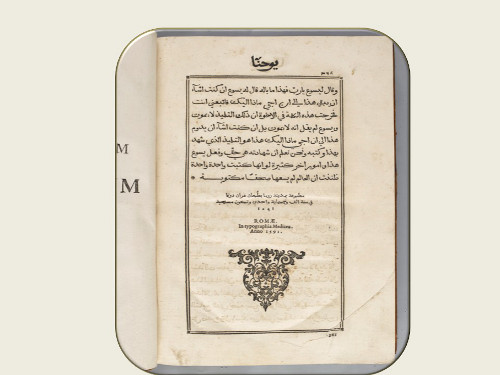 يوحنّا
وقال ليسوع يارب فهذا ما باله قال له يسوع ان كنت اشآء
هذا الى ان اجى ماذا اليك فاتبعنى انت
هذه الكلمة فى الاخوة ان ذلك التلميذ لا يموت
ويسوع لم يقل انه لا يموت بل ان كنت اشآء ان يدوم
هذا الى ان اجى ماذا اليك هذا هو التلميذ الذى شهد
بهذا وكتبه ونحن نعلم ان شهادته هى حق وفعل يسوع
هذا وامور اخر كثيرة لو انها كتبت واحدة واحدة
ظننت ان العالم لم يسعها صحفا مكتوبة
ROMÆ,
In typographia Medicea.
Anno 1591.
M
M